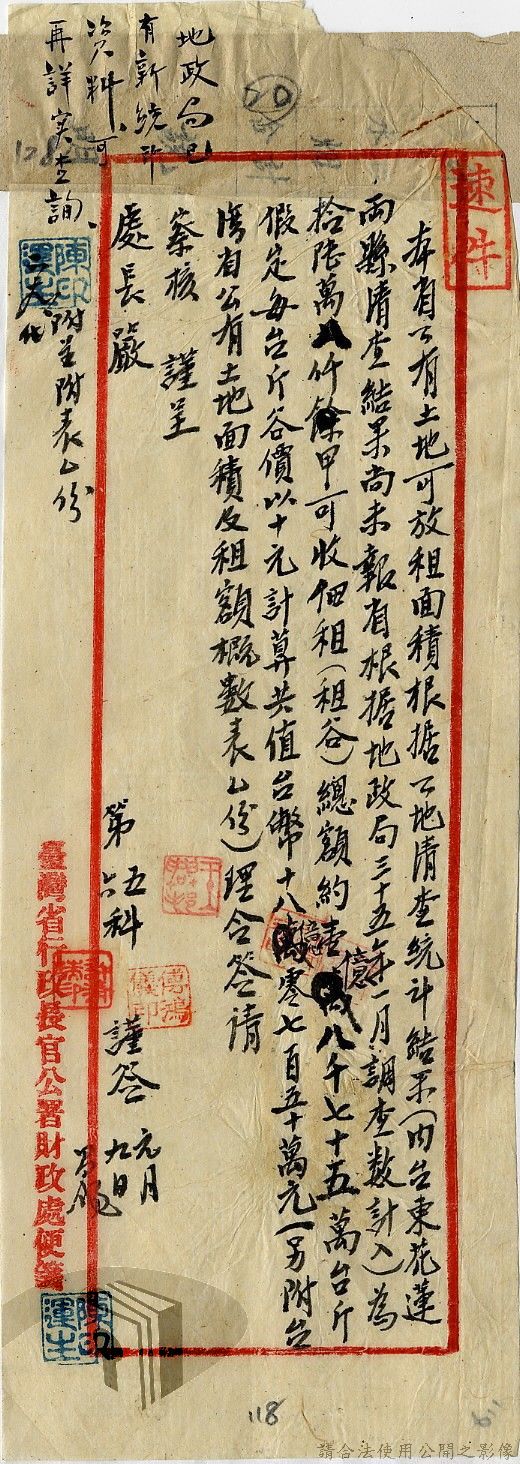 速件
本省公有土地可放租面積根据公地清查統计結果(內台東花蓮
兩縣清查結果尚未報省根据地政局三十五年一月調查數計入)為
拾陸萬八仟餘甲可收佃租(租谷)總額約壹億八千七十五萬台斤
假定每台斤谷價以十元計算共值台幣十八億零七百五十萬元(另附台
灣省公有土地面積及租額概數表乙份)理合簽請
察核 謹呈
處長嚴
附呈附表乙份
第五六科 謹簽 元月九日
地政局已
有新統計
資料、可
再詳实查詢、
陳印運生
傅鴻儀印
陳印運生
臺灣省行政長官公署財政處便箋
70
128
118
請合法使用公開之影像